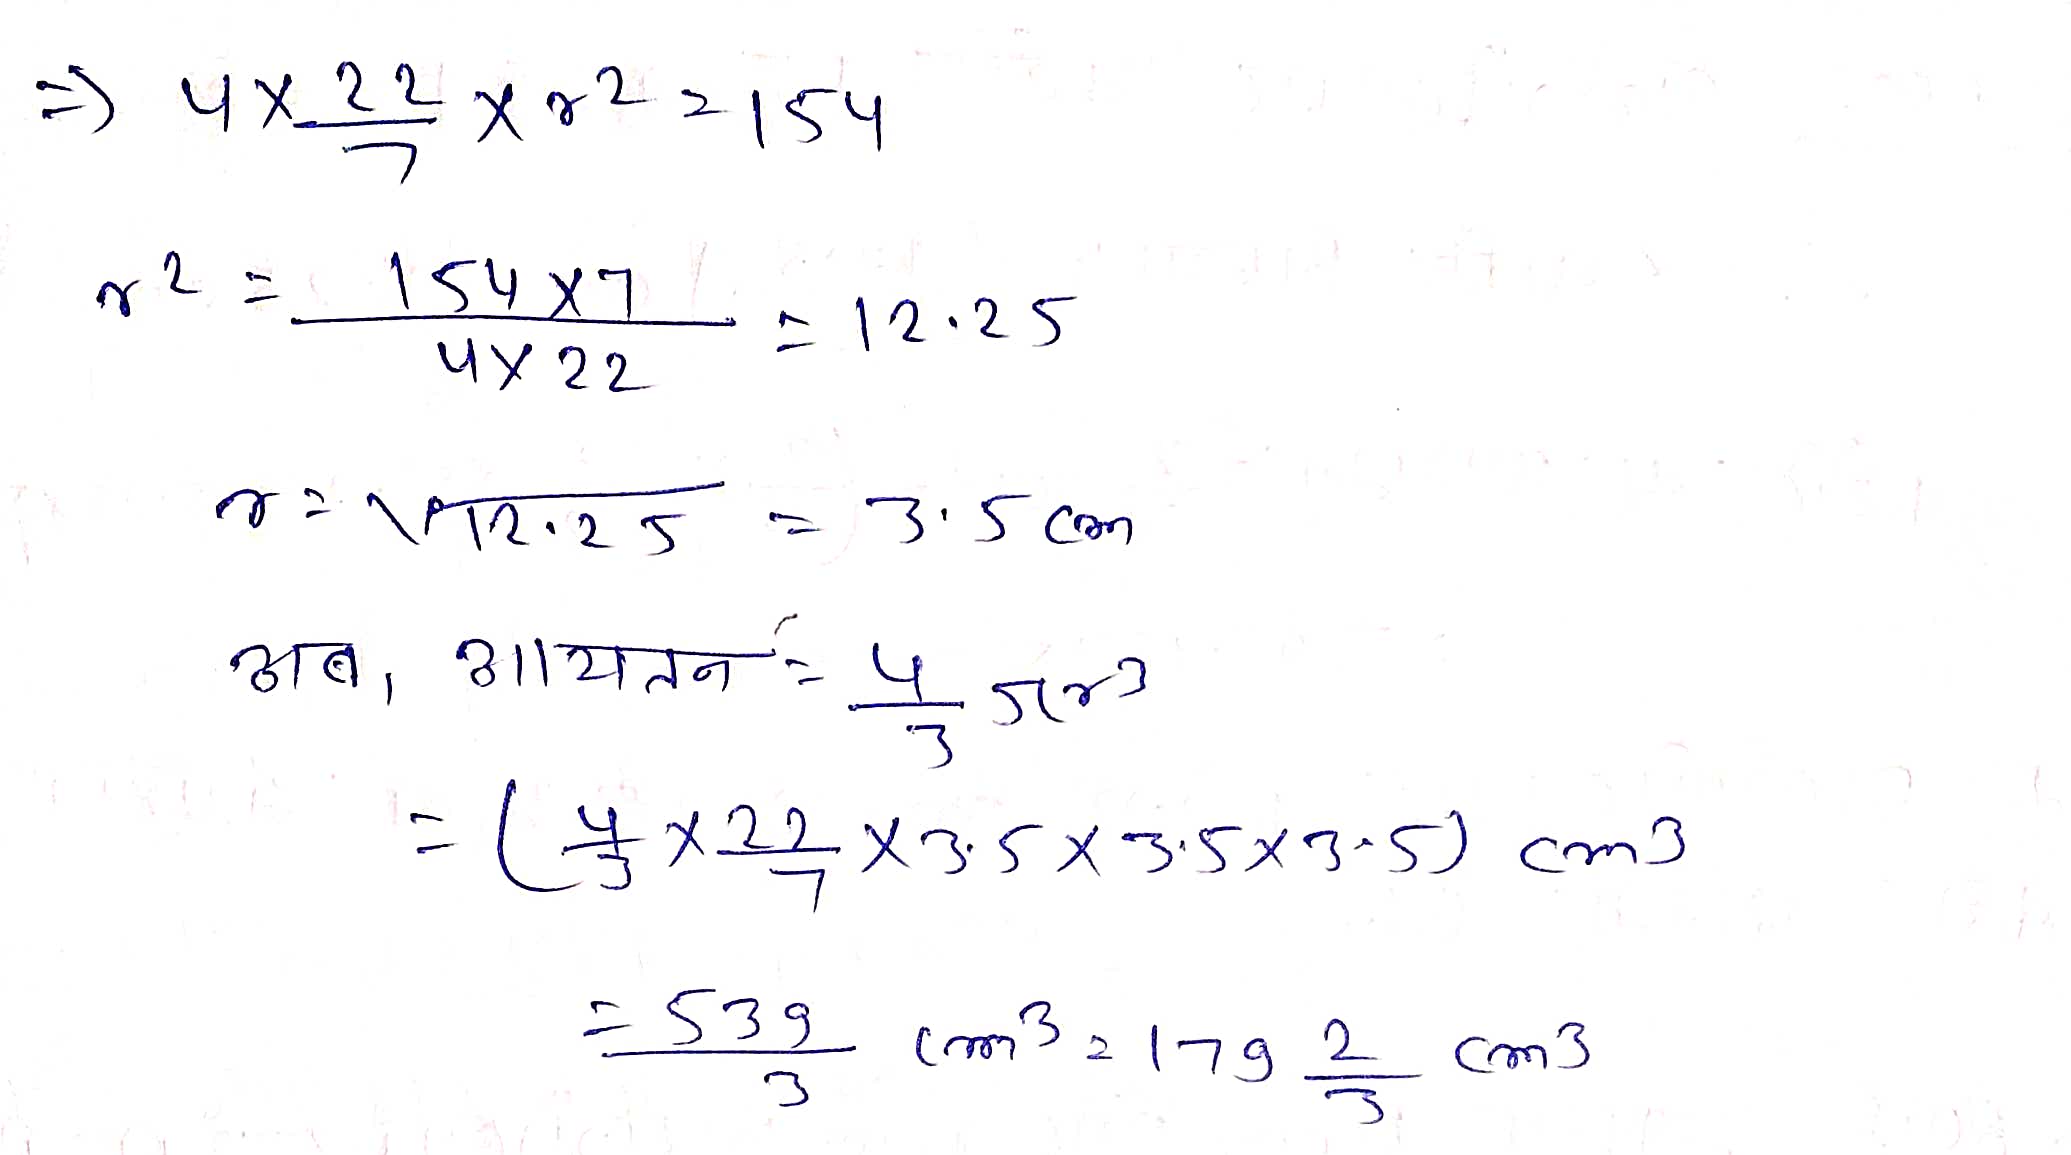 => 4 × 22/7 × r² = 154
r² = 154×7/4×22 = 12.25
r = √12.25 = 3.5 cm
अब, आयतन = 4/3 πr³
= (4/3 × 22/7 × 3.5 × 3.5 × 3.5) cm3
= 539/3 cm³ = 179 2/3 cm3